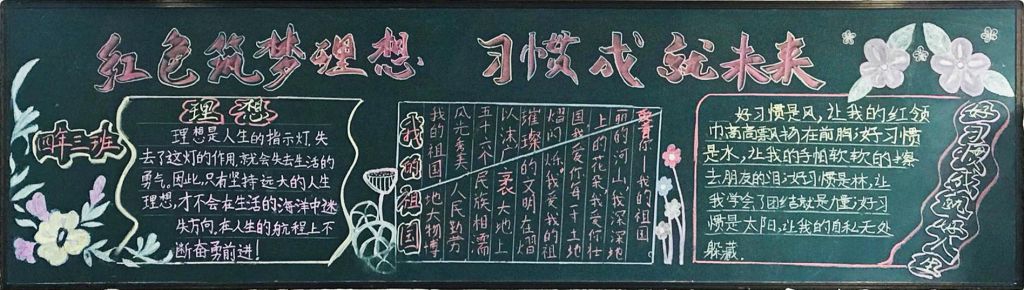 红色筑梦理想 习惯成就未来
四年三班
理想
理想是人生的指示灯,失
去了这灯的作用,就会失去生活的
勇气。因此,只有坚持远大的人生
理想,才不会在生活的海洋中迷
失方向,在人生的航程上不
断奋勇前进!
我的祖国
我的祖国
丽的河山,我深深地
上的花朵,我爱你壮
国我爱你每寸土地
五十六个民族相濡
风光秀美人民勤劳
我的祖国地大物博
好习惯是风,让我的红领
巾高高飘扬在前胸;好习惯
是水,让我的手帕软软的擦
去朋友的泪;好习惯是林,让
我学会了团结就是力量;好习
惯是太阳,让我的自私无处
躲藏.
好习惯成就一生